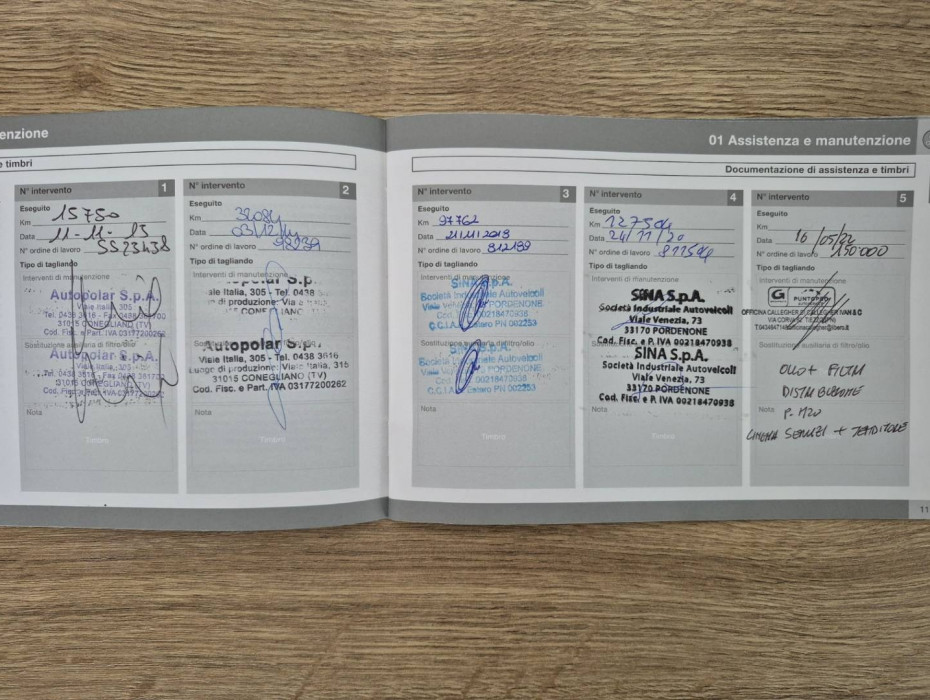 enzione
e timbri
N° intervento 1
Eseguito
Km 15750
Data 11-11-13
N° ordine di lavoro 5523438
Tipo di tagliando
Interventi di manutenzione
Autopolar S.p.A.
Viale Italia, 305
Tel. 0438 3616 - Fax 0438
31015 CONEGLIANO (TV)
Cod. Fisc. e Part. IVA 03177200262
Sostituzione ausiliaria di filtro/olio
Autopolar S.p.A.
Viale Italia, 305
Tel. 0438 3616 - Fax 0438
31015 CONEGLIANO (TV)
Cod. Fisc. e Part. IVA 03177200262
Nota
Timbro
N° intervento 2
Eseguito
Km
Data 03/12/14
N° ordine di lavoro
Tipo di tagliando
Interventi di manutenzione
S.p.
ale Italia, 305 - Tel. 0438
di produzione: Via
CONEGLIANO
Autopolar S.p.
Viale Italia, 305 - Tel. 0438 3616
Luogo di produzione: Viale Italia, 315
31015 CONEGLIANO (TV)
Cod. Fisc. e Part. IVA 03177200262
Nota
Timbro
01 Assistenza e manutenzione
Documentazione di assistenza e timbri
N° intervento 3
Eseguito
Km 97762
Data 21/11/2019
N° ordine di lavoro 812199
Tipo di tagliando
Interventi di manutenzione
SINA S.p.A.
Società Industriale Autoveicoli
Viale Venezia, 73
33170 PORDENONE
00218470938
C.C.I.A. Estero PN 002253
Sostituzione ausiliaria di filtro/olio
SINA S.p.A.
Società Industriale Autoveicoli
Viale Venezia, 73
33170 PORDENONE
00218470938
C.C.I.A. Estero PN 002253
Nota
Timbro
N° intervento 4
Eseguito
Km 127504
Data 24/11/20
N° ordine di lavoro
Tipo di tagliando
Interventi di manutenzione
SINA S.p.A.
Società Industriale Autoveicoli
Viale Venezia, 73
33170 PORDENONE
Cod. Fisc. e P. IVA 00218470938
SINA S.p.A.
Società Industriale Autoveicoli
Viale Venezia, 73
33170 PORDENONE
Cod. Fisc. e P. IVA 00218470938
Nota
Timbro
N° intervento 5
Eseguito
Km
Data 16/05/22
N° ordine di lavoro 150'000
Tipo di tagliando
Interventi di manutenzione
G PUNTOPRO
Sostituzione ausiliaria di filtro/olio
OLIO + FILTRI
DISTRIBUZIONE
Nota P. H2O
CINGHIA SERVIZI + TENDITORE
11